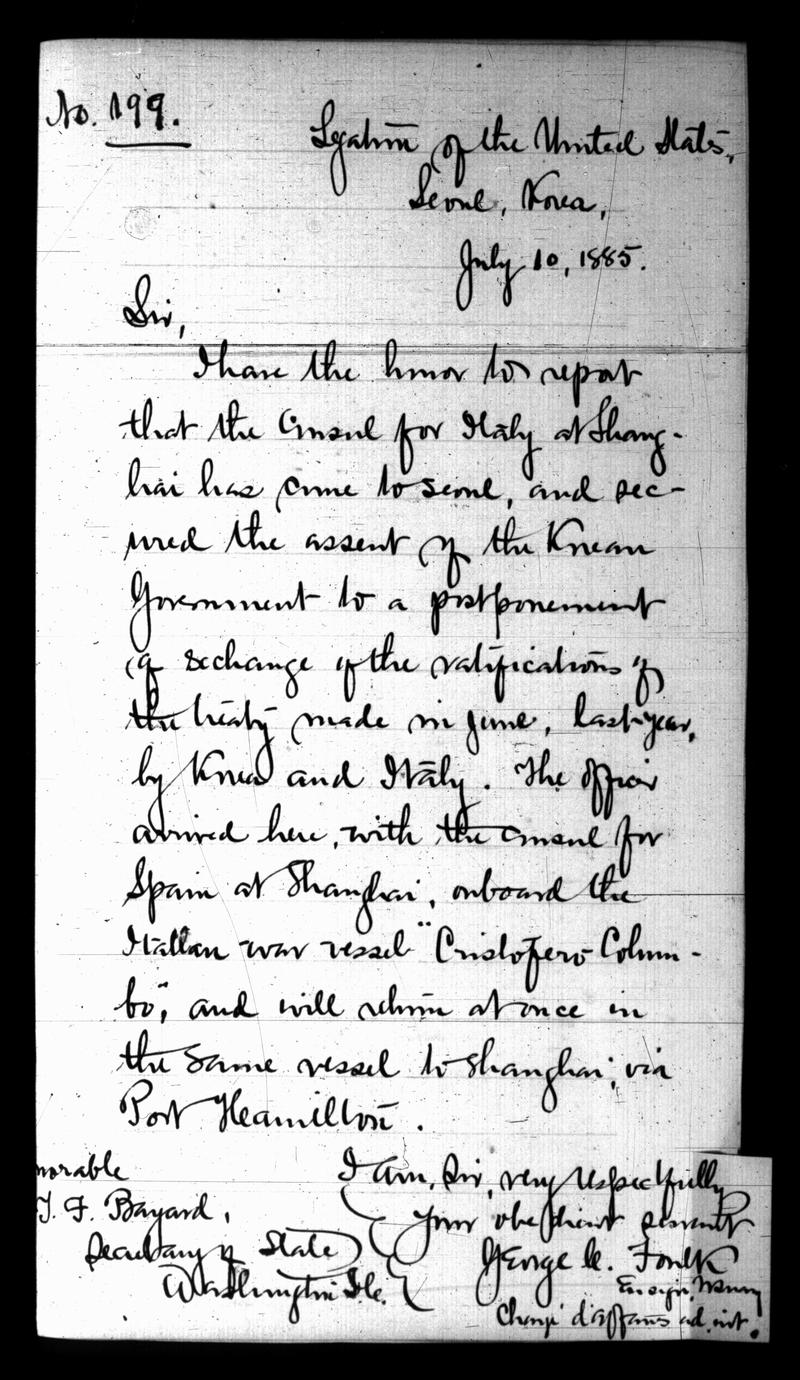 No. 199.
Legation of the United States,
Seoul, Korea,
July 10, 1885.
Sir,
I have the honor to report
that the Consul for Italy at Shang-
hai has come to Seoul, and sec-
ured the assent of the Korean
Government to a postponement
of exchange of the ratifications of
the treaty made in June, last year,
by Korea and Italy. The officer
arrived here, with the consul for
Spain at Shanghai, onboard the
Italian war vessel "Cristofero Colum-
bo", and will return at once in
the same vessel to Shanghai, via
Port Hamilton.
I am, Sir, very respectfully
your obedient servant
norable
T. F. Bayard,
Secretary of State
Washington D.C.
George C. Foulk
Ensign, U.S. Navy
Chargé d'affaires ad. int.